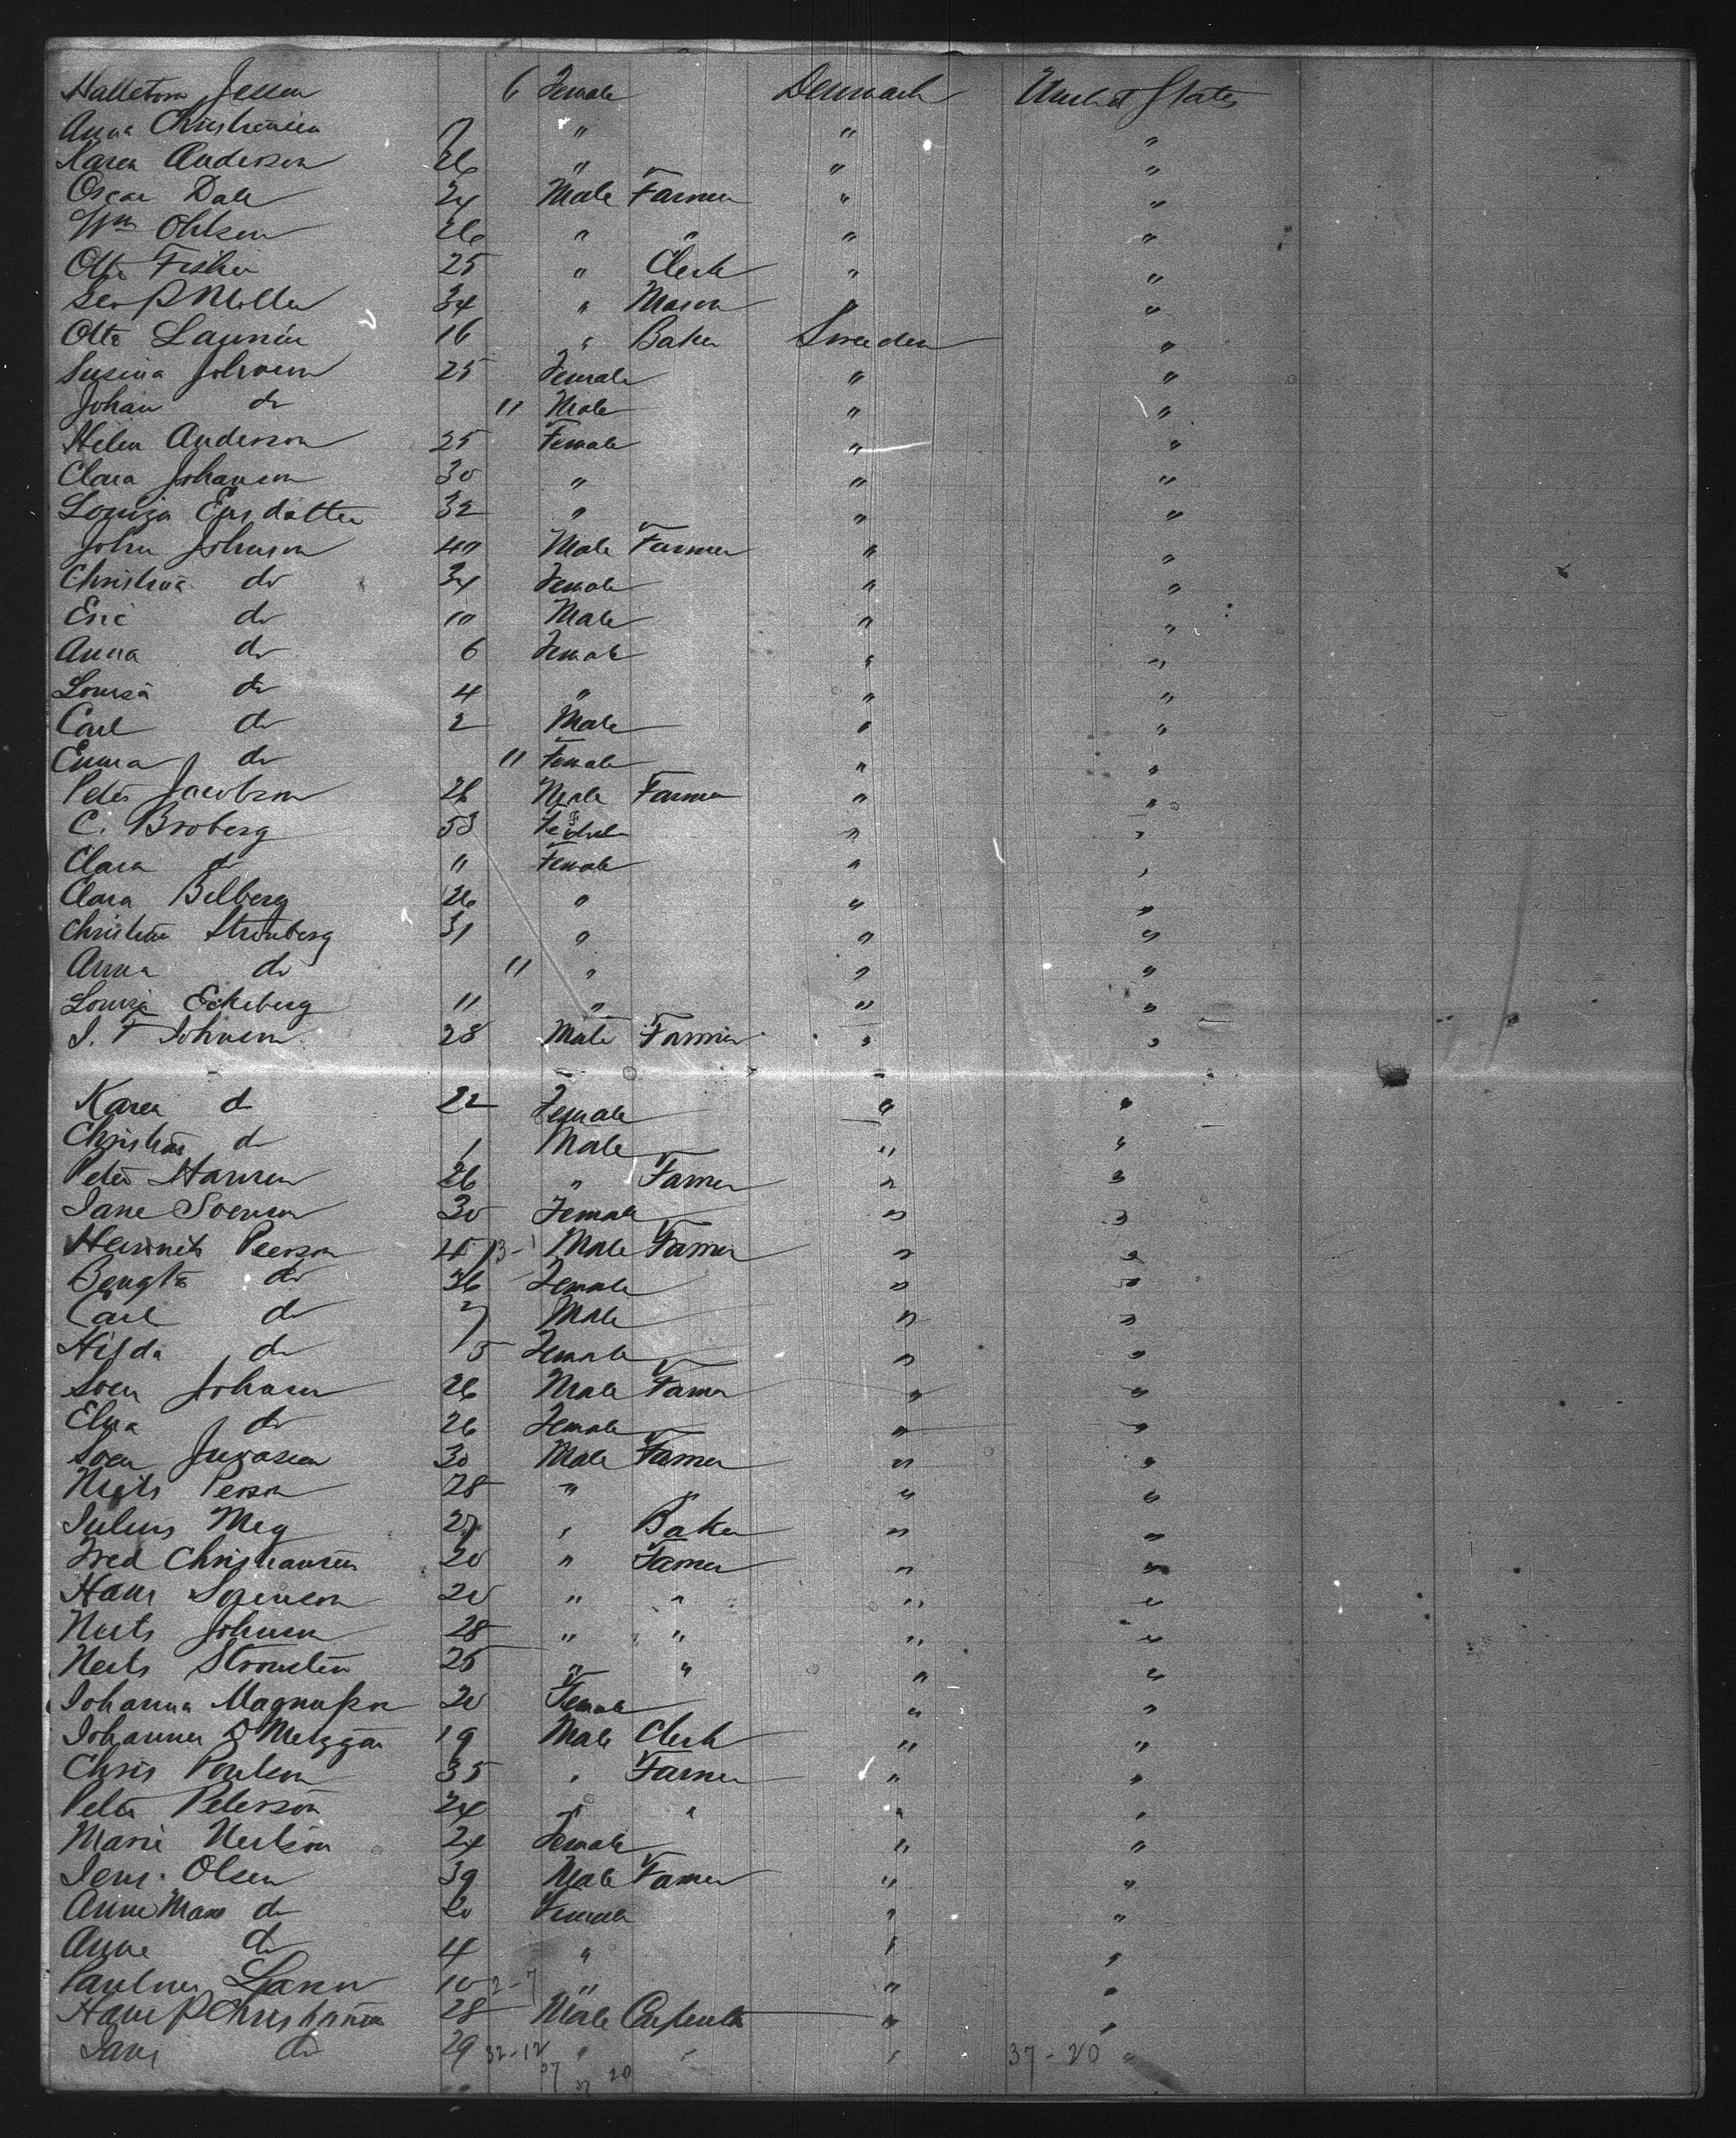 Jessen 6 Female Denmark United States
Anna Christensen 7 " " "
Karen Anderson 26 " " "
Oscar Dale 24 Male Farmer " "
Wm Ohlsen 26 " " " "
Otto Fisher 25 " Clerk " "
P Moller 34 " Mason " "
Otto 16 " Baker Sweden "
Susina Johnson 25 Female " "
Johan do 11 Male " "
Helen Anderson 25 Female " "
Clara Johanson 30 " " "
Louiza 32 " " "
John Johnson 40 Male Farmer " "
Christina do 34 Female " "
Eric do 10 Male " "
Anna do 6 Female " "
Louisa do 4 " " "
Carl do 2 Male " "
Emma do 11 Female " "
Peter Jacobson 28 Male Farmer " "
C. Broberg 53 " "
Clara do 11 Female " "
Clara Belberg 26 " " "
Christina Stromberg 31 " " "
Anna do 11 " " "
Louiza Eckeberg 11 " " "
J. F Johnson 28 Male Farmer " "
Karen do 22 Female " "
Christian do 1 Male " "
Peter Hansen 26 " Farmer " "
Jane Svenson 30 Female " "
Peerson 45 13-1 Male Farmer " "
Bengta do 36 Female " "
Carl do 7 Male " "
Hilda do 5 Female " "
Soen Johansen 26 Male Farmer " "
Elna do 26 Female " "
Soen 30 Male Farmer " "
Neils Person 28 " " " "
Julius Meg 27 " Baker " "
Fred Christiansen 20 " Farmer " "
Hans Sorenson 20 " " " "
Neils Johnson 28 " " " "
Neils 25 " " " "
Johanna Magnusson 20 Female " "
Johannes 19 Male Clerk " "
Chris Poulsen 35 " Farmer " "
Peter Peterson 24 " " " "
Marie Neilson 24 Female " "
Jens Olsen 39 Male Farmer " "
Anne do 20 Female " "
Anne do 4 " " "
10 2-7 " " "
Hans P Christiansen 28 Male Carpenter " "
do 29 32-12 " " " 37-20 "
37 20